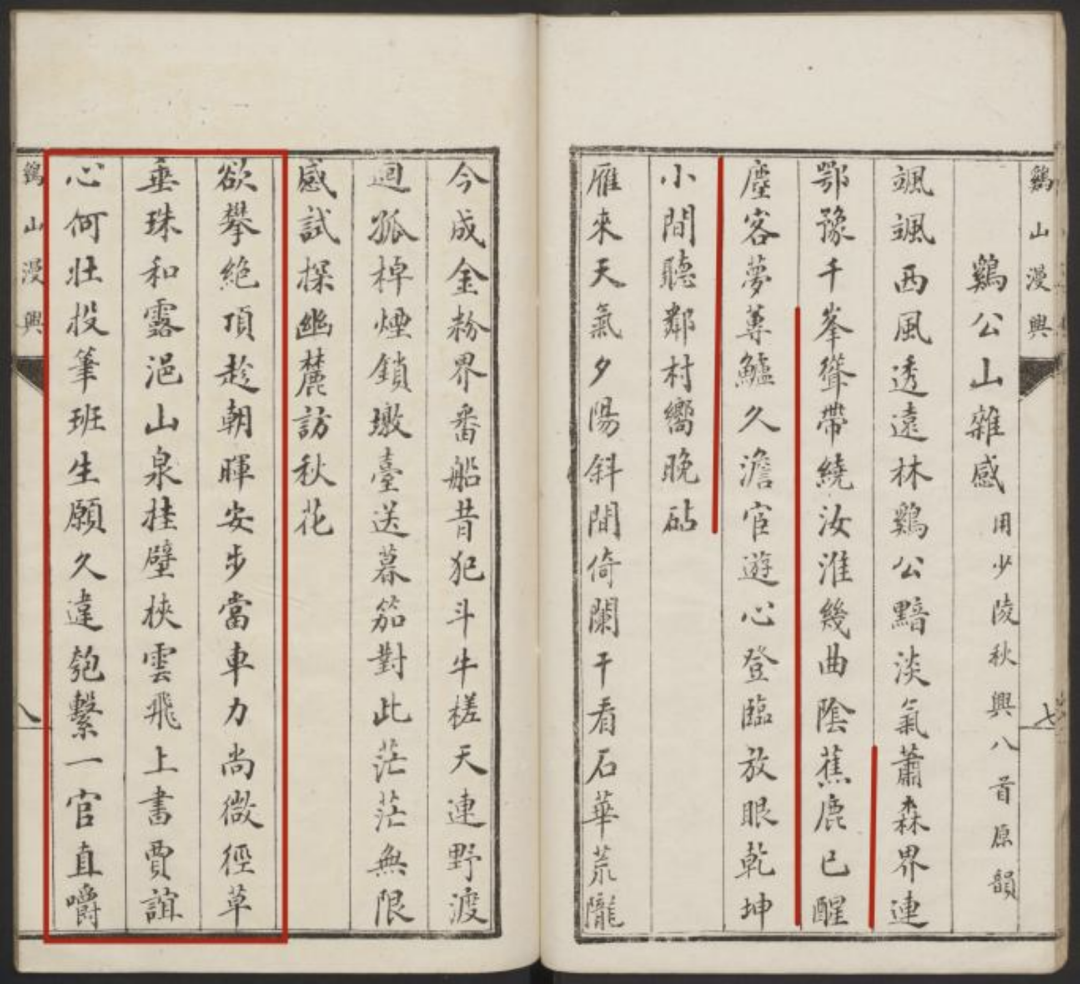 鷄山漫興
七
鷄公山雜感 用少陵秋興八首原韻
颯颯西風透遠林鷄公黯淡氣蕭森界連
鄂豫千峯聳帶繞汝淮幾曲陰蕉鹿已醒
塵客夢蓴鱸久澹宦遊心登臨放眼乾坤
小間聽鄰村嚮晚砧
雁來天氣夕陽斜閒倚闌干看石華荒隴
今成金粉界番船昔犯斗牛槎天連野渡
迴孤棹煙鎖墩臺送暮笳對此茫茫無限
感試探幽麓訪秋花
欲攀絕頂趁朝暉安步當車力尚微徑草
垂珠和露浥山泉挂壁挾雲飛上書賈誼
心何壯投筆班生願久違匏繫一官直嚼
鷄山漫興
八